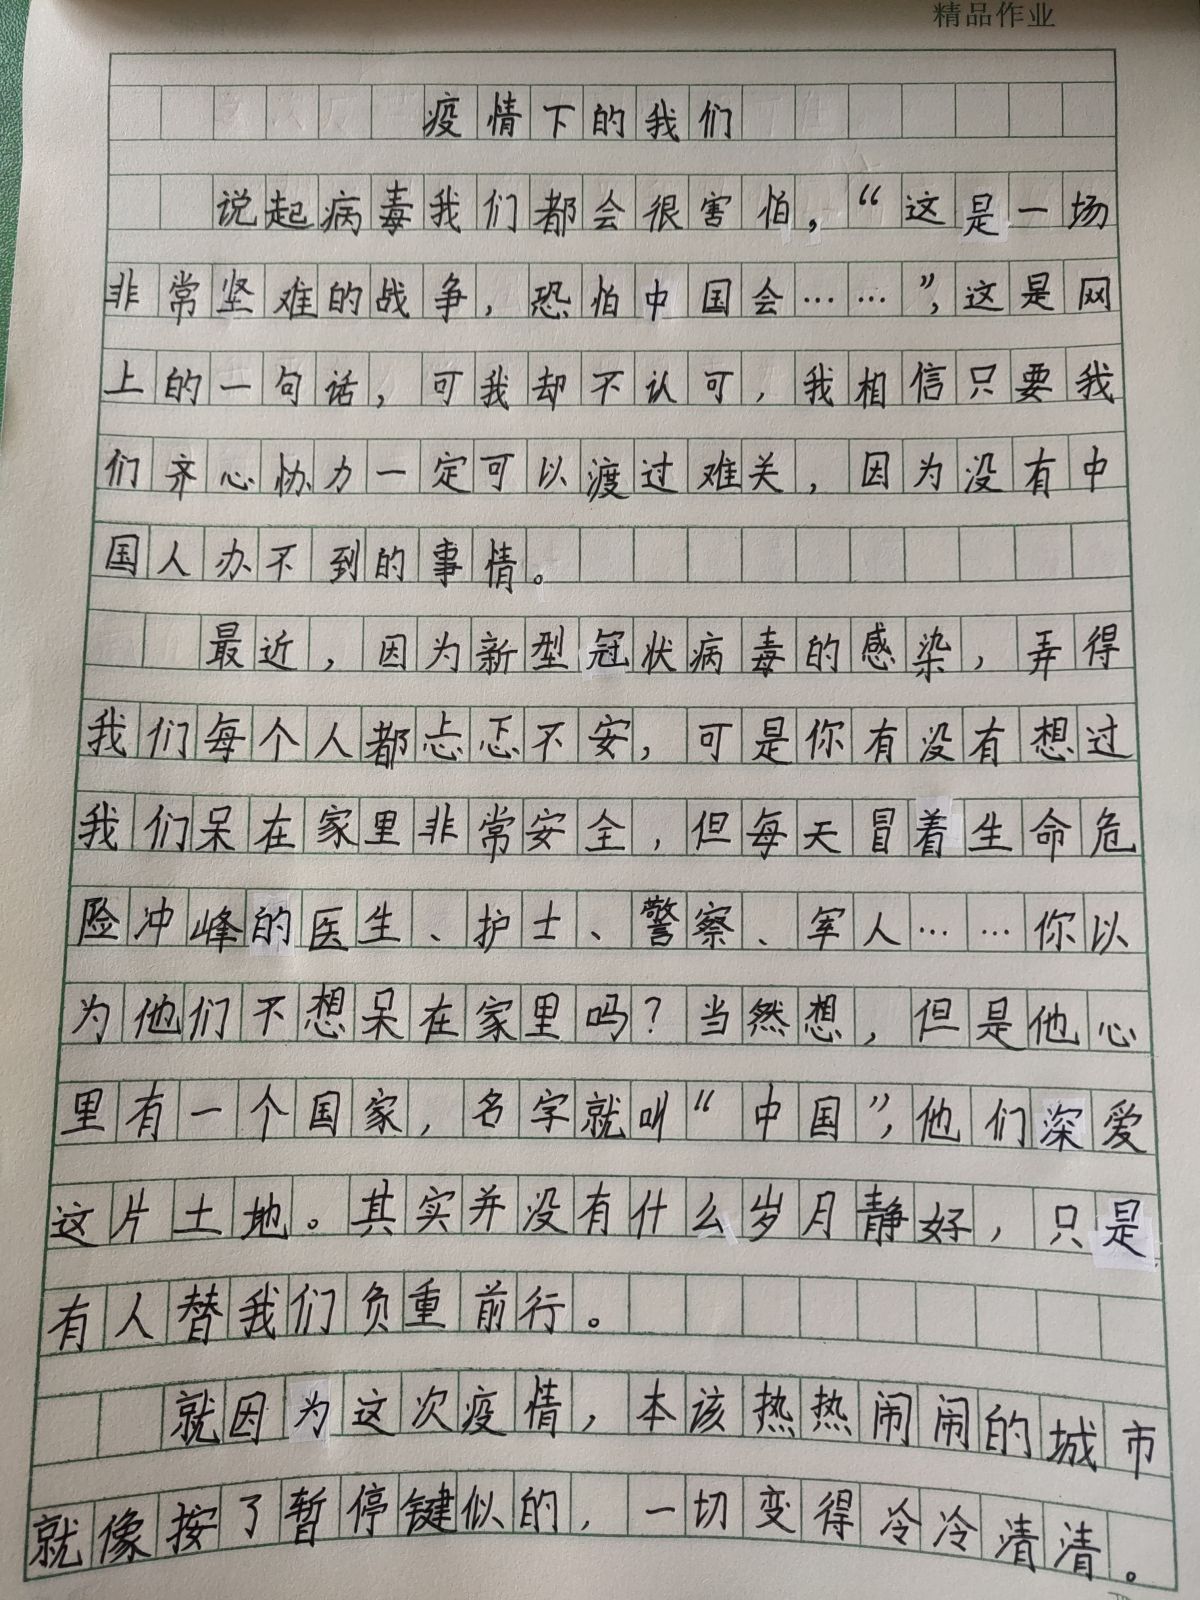 精品作业
疫情下的我们
说起病毒我们都会很害怕，“这是一场
非常坚难的战争，恐怕中国会……”，这是网
上的一句话，可我却不认可，我相信只要我
们齐心协力一定可以渡过难关，因为没有中
国人办不到的事情。
最近，因为新型冠状病毒的感染，弄得
我们每个人都忐忑不安，可是你有没有想过
我们呆在家里非常安全，但每天冒着生命危
险冲峰的医生、护士、警察、军人……你以
为他们不想呆在家里吗？当然想，但是他心
里有一个国家，名字就叫“中国”，他们深爱
这片土地。其实并没有什么岁月静好，只是
有人替我们负重前行。
就因为这次疫情，本该热热闹闹的城市
就像按了暂停键似的，一切变得冷冷清清。